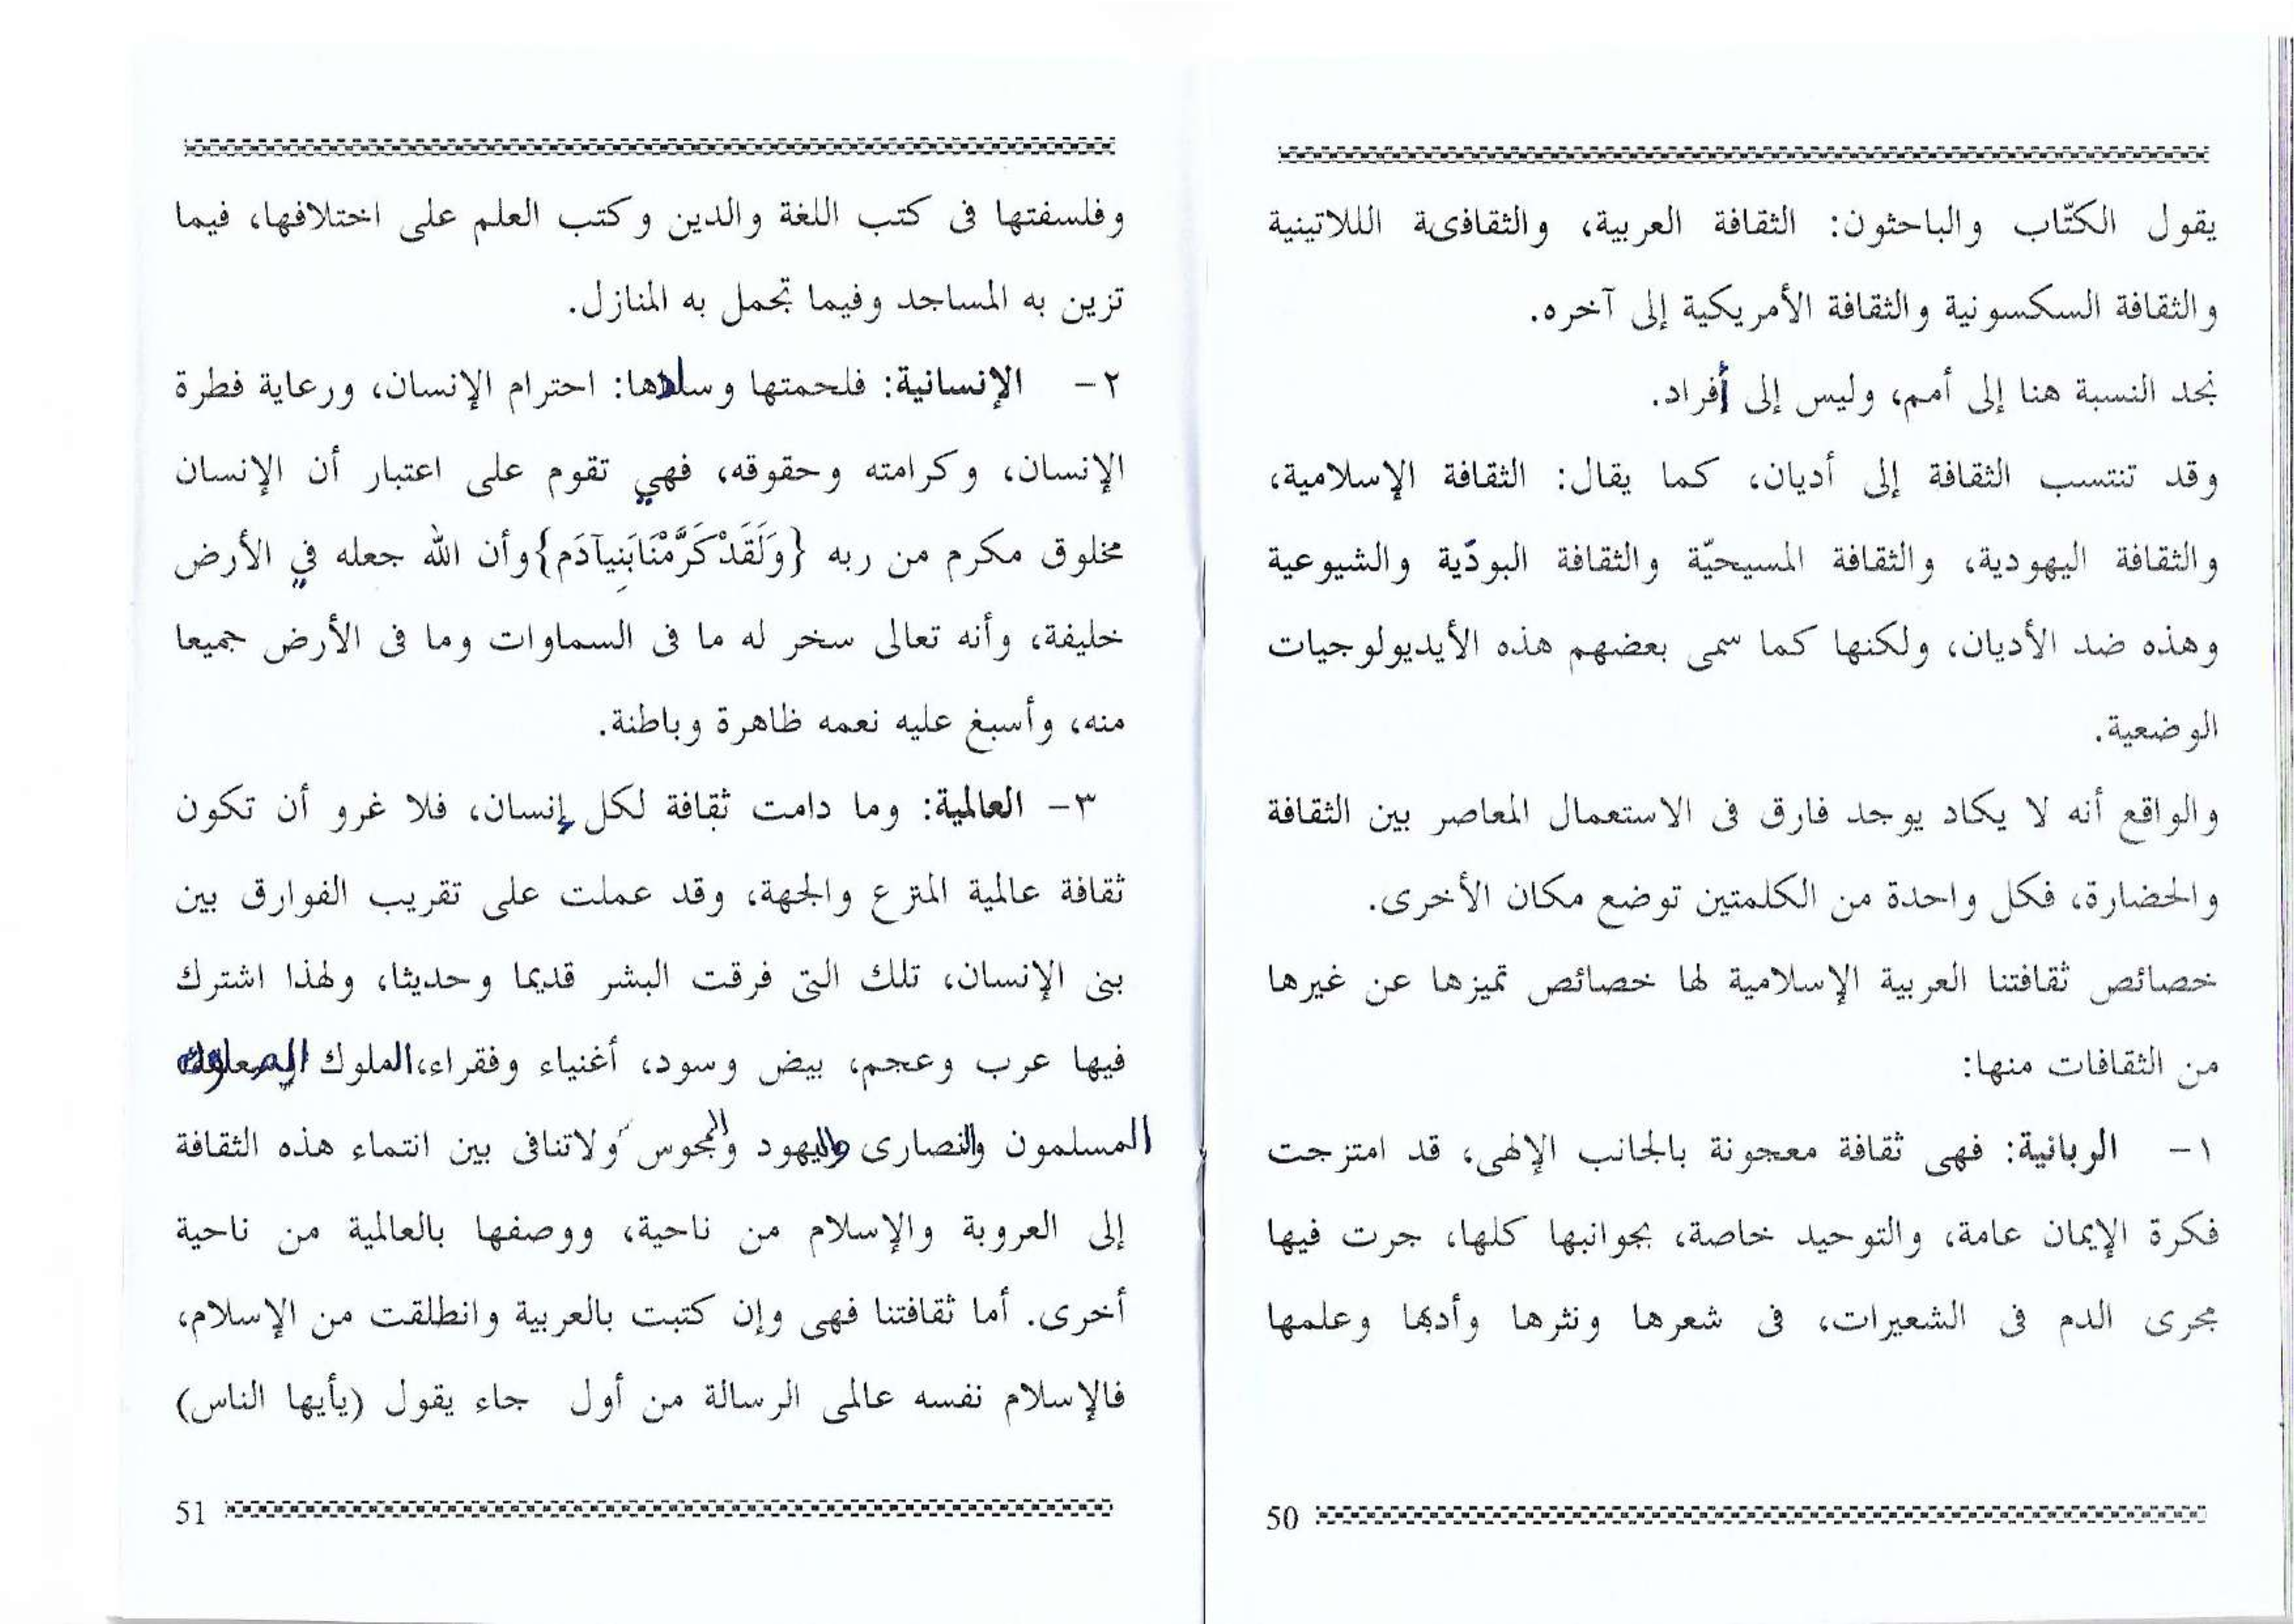 يقول الكتّاب والباحثون: الثقافة العربية، والثقافىة اللاتينية
والثقافة السكسونية والثقافة الأمريكية إلى آخره.
نجد النسبة هنا إلى أمم، وليس إلى أفراد.
وقد تنتسب الثقافة إلى أديان، كما يقال: الثقافة الإسلامية،
والثقافة اليهودية، والثقافة المسيحيّة والثقافة البودّية والشيوعية
وهذه ضد الأديان، ولكنها كما سمى بعضهم هذه الأيديولوجيات
الوضعية.
والواقع أنه لا يكاد يوجد فارق فى الاستعمال المعاصر بين الثقافة
والحضارة، فكل واحدة من الكلمتين توضع مكان الأخرى.
خصائص ثقافتنا العربية الإسلامية لها خصائص تميزها عن غيرها
من الثقافات منها:
١- الربانية: فهى ثقافة معجونة بالجانب الإلهى، قد امتزجت
فكرة الإيمان عامة، والتوحيد خاصة، بجوانبها كلها، جرت فيها
مجرى الدم فى الشعيرات، فى شعرها ونثرها وأدبها وعلمها
50
وفلسفتها فى كتب اللغة والدين وكتب العلم على اختلافها، فيما
تزين به المساجد وفيما تجمل به المنازل.
٢- الإنسانية: فلحمتها وسداها: احترام الإنسان، ورعاية فطرة
الإنسان، وكرامته وحقوقه، فهي تقوم على اعتبار أن الإنسان
مخلوق مكرم من ربه {وَلَقَدْكَرَّمْنَابَنِيآدَم}وأن الله جعله في الأرض
خليفة، وأنه تعالى سخر له ما فى السماوات وما فى الأرض جميعا
منه، وأسبغ عليه نعمه ظاهرة وباطنة.
٣- العالمية: وما دامت ثقافة لكل إنسان، فلا غرو أن تكون
ثقافة عالمية المترع والجهة، وقد عملت على تقريب الفوارق بين
بنى الإنسان، تلك التى فرقت البشر قديما وحديثا، ولهذا اشترك
فيها عرب وعجم، بيض وسود، أغنياء وفقراء،الملوك
المسلمون والنصارى واليهود والمجوس ولاتنافى بين انتماء هذه الثقافة
إلى العروبة والإسلام من ناحية، ووصفها بالعالمية من ناحية
أخرى. أما ثقافتنا فهى وإن كتبت بالعربية وانطلقت من الإسلام،
فالإسلام نفسه عالمى الرسالة من أول جاء يقول (يأيها الناس)
51